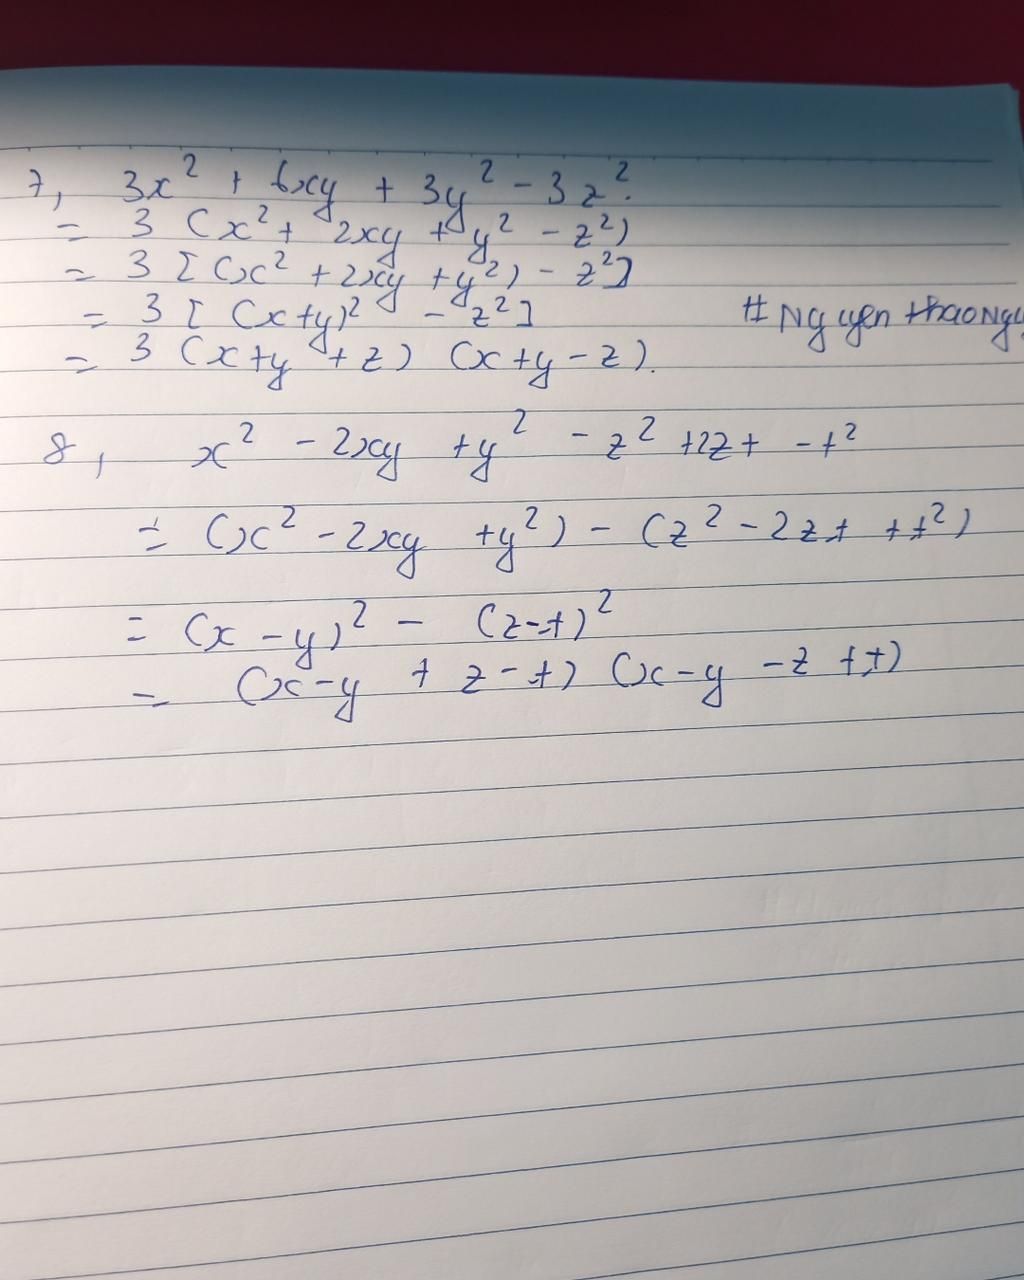 7, 3x² + 6xy + 3y² - 3z².
= 3 (x² + 2xy + y² - z²)
= 3 [(x² + 2xy + y²) - z²]
= 3 [(x+y)² - z²]
# Nguyen thaoNgu
= 3 (x+y+z) (x+y-z).
8, x² - 2xy + y² - z² + 2zt - t²
= (x² - 2xy + y²) - (z² - 2zt + t²)
= (x-y)² - (z-t)²
= (x-y + z-t) (x-y-z+t)